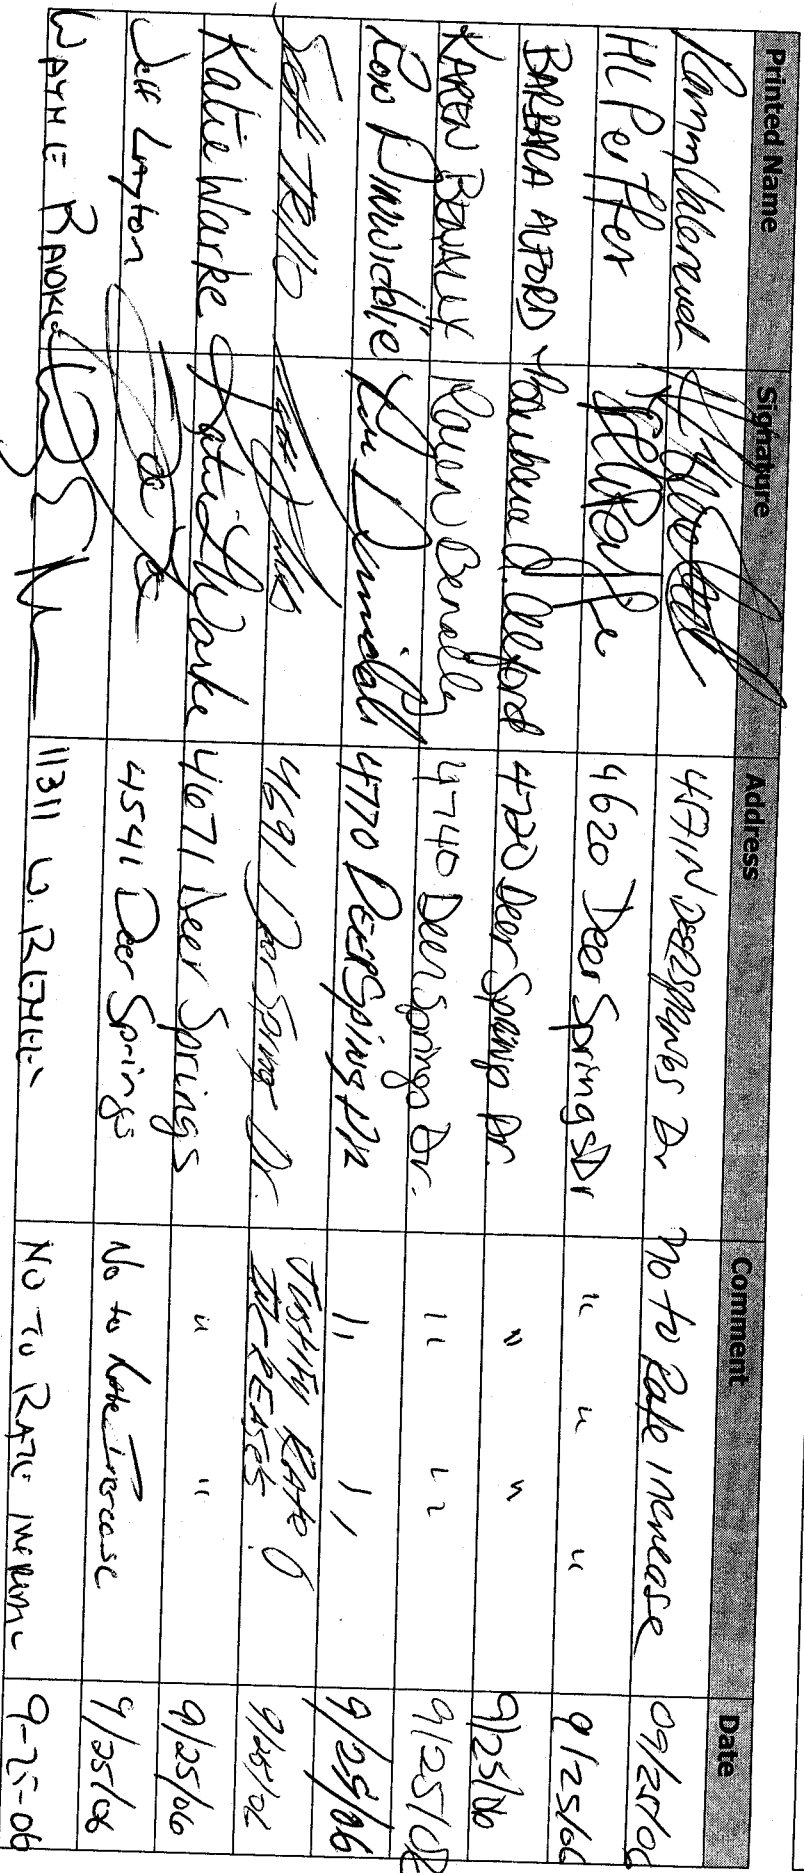 Printed Name Signature Address Comment Date
Dr no to Rate increase 09/25/06
HL Perffer 4620 Deer Springs Dr " " " 9/25/06
BARBARA ALFORD Barbara A. Alford 4720 Deer Springs Dr. " " 9/25/06
KAREN BENALLY Karen Benally 4740 Deer Springs Dr. " " 9/25/06
Ron Dinwiddie 4770 DEER Springs DR " " 9/25/06
Scott TRILLO 4691 Deer Springs Dr. JUSTIFY RATE INCREASES! 9/25/06
Katie Warke Katie Warke 4671 Deer Springs " " 9/25/06
Jeff Layton 4541 Deer Springs No to Rate Increase 9/25/06
WAYNE RADKE 11311 W. No TO RATE 9-25-06